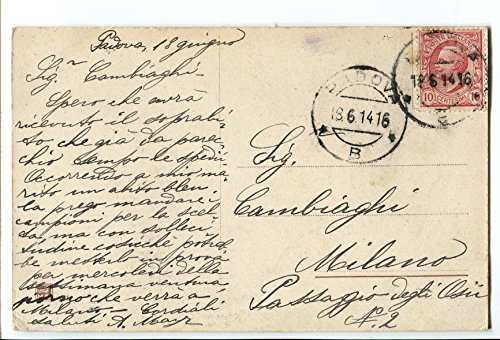 Padova, 18 giugno
Sig.r Cambiaghi
Spero che avrà
ricevuto il soprabi-
to, che già da parec-
chio tempo le spedii
Occorrendo a mio ma-
rito un abito bleu
la prego mandare
campioni per la scel-
ta, ma con solleci-
tudine cosicchè potreb-
be metterlo in prova
per mercoledì della
settimana ventura
giorno che verrà a
Milano - Cordiali
saluti A. Mayr
PADOVA
18.6.14 16
B
18.6 14 16
POSTE ITALIANE
10 CENTESIMI 10
Sig.
Cambiaghi
Milano
Passaggio degli Osii
N. 2